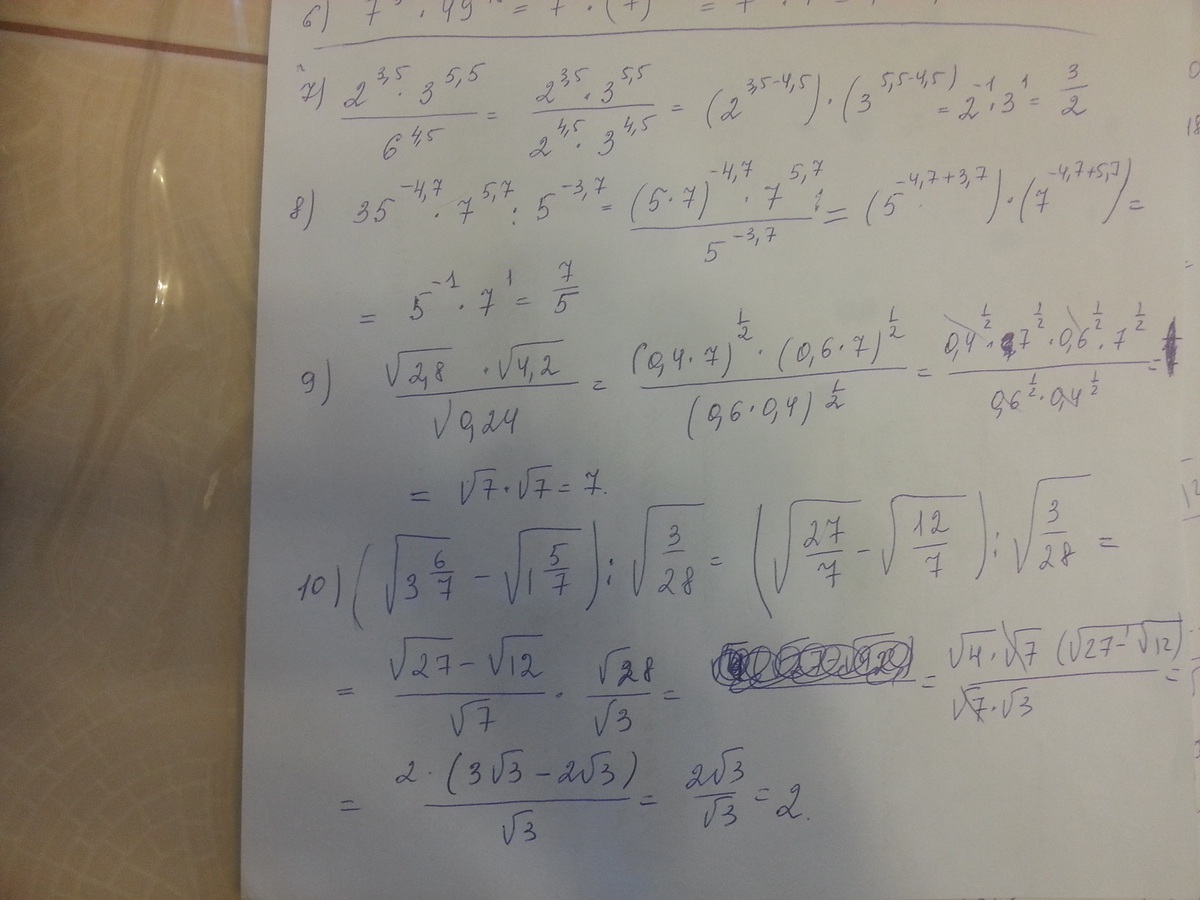 6) 7 · 49 = 7 · (7) = 7
7) 2^{3,5} · 3^{5,5} / 6^{4,5} = 2^{3,5} · 3^{5,5} / 2^{4,5} · 3^{4,5} = (2^{3,5-4,5}) · (3^{5,5-4,5}) = 2^{-1} · 3^{1} = 3/2
8) 35^{-4,7} · 7^{5,7} : 5^{-3,7} = (5·7)^{-4,7} · 7^{5,7} / 5^{-3,7} = (5^{-4,7+3,7}) · (7^{-4,7+5,7}) =
= 5^{-1} · 7^{1} = 7/5
9) √2,8 · √4,2 / √0,24 = (0,4·7)^{1/2} · (0,6·7)^{1/2} / (0,6·0,4)^{1/2} = 0,4^{1/2} · 7^{1/2} · 0,6^{1/2} · 7^{1/2} / 0,6^{1/2} · 0,4^{1/2} =
= √7 · √7 = 7.
10) (√(3 6/7) - √(1 5/7)) : √(3/28) = (√(27/7) - √(12/7)) : √(3/28) =
= (√27 - √12) / √7 · √28 / √3 = = √4 · √7 (√27 - √12) / √7 · √3 =
= 2 · (3√3 - 2√3) / √3 = 2√3 / √3 = 2.